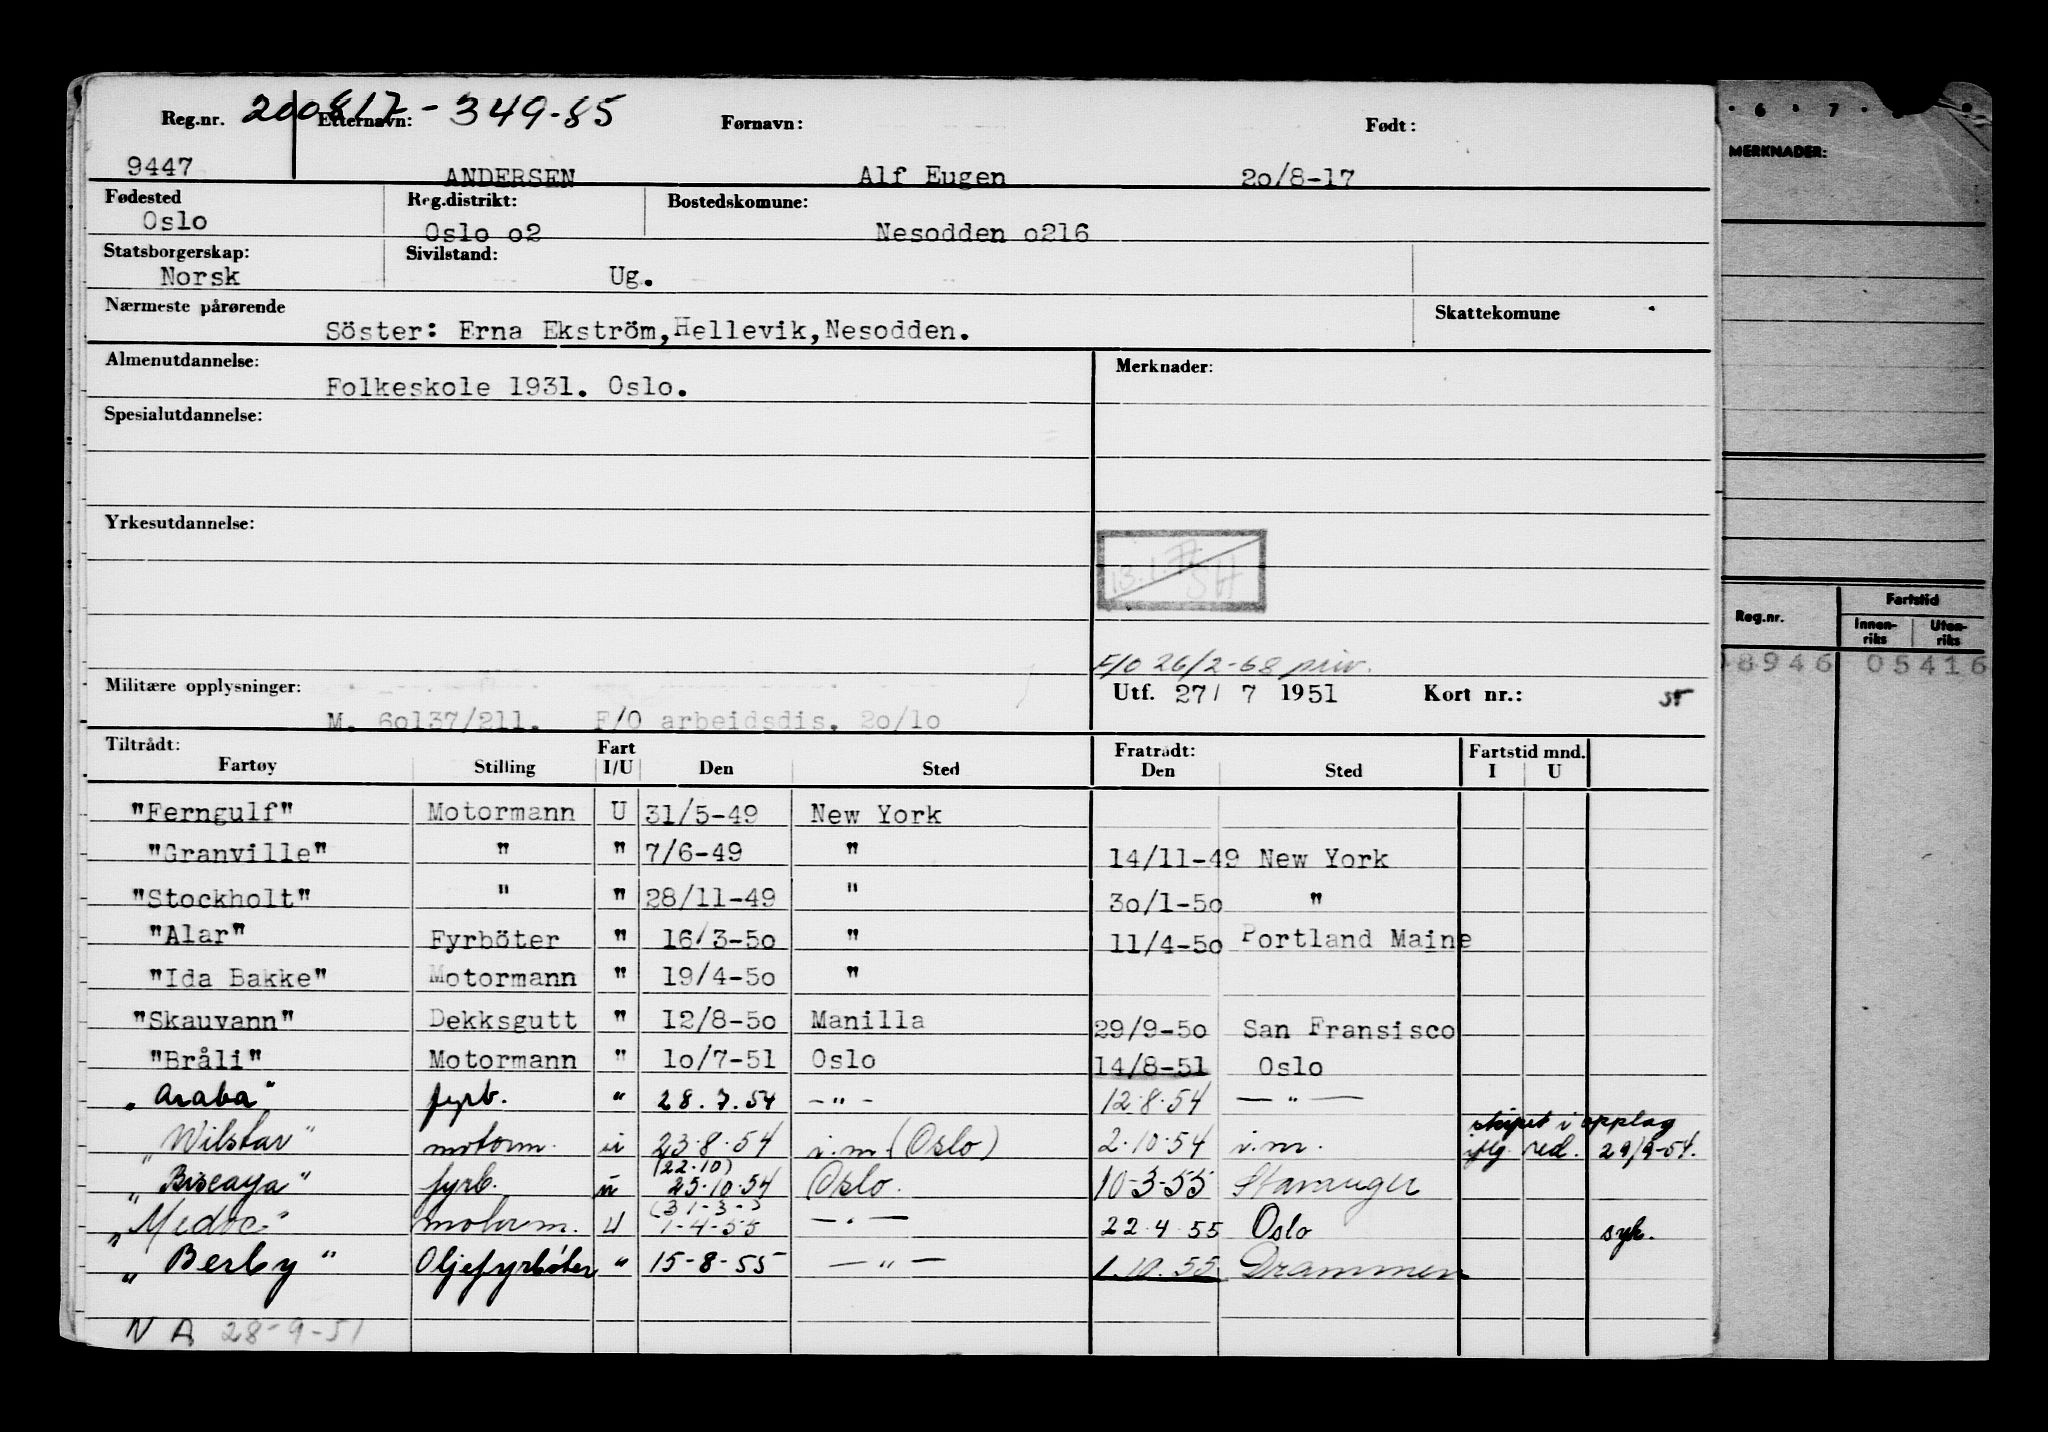 Reg.nr. 200817-349-85 Etternavn: Førnavn: Født:
9447 ANDERSEN Alf Eugen 2o/8-17
Fødested Reg.distrikt: Bostedskomune:
Oslo Oslo o2 Nesodden o216
Statsborgerskap: Sivilstand:
Norsk Ug.
Nærmeste pårørende Skattekomune
Söster: Erna Ekström,Hellevik,Nesodden.
Almenutdannelse: Merknader:
Folkeskole 1931. Oslo.
Spesialutdannelse:
Yrkesutdannelse:
F/O 26/2-68 priv.
Militære opplysninger: Utf. 27/ 7 1951 Kort nr.:
M. 6o137/211. F/O arbeidsdis. 2o/1o
Tiltrådt: Fart Fratrådt: Fartstid mnd.
Fartøy Stilling I/U Den Sted Den Sted I U
"Ferngulf" Motormann U 31/5-49 New York
"Granville" " " 7/6-49 " 14/11-49 New York
"Stockholt" " " 28/11-49 " 3o/1-5o "
"Alar" Fyrböter " 16/3-5o " 11/4-5o Portland Maine
"Ida Bakke" Motormann " 19/4-5o "
"Skauvann" Dekksgutt " 12/8-5o Manilla 29/9-5o San Fransisco
"Bråli" Motormann " 1o/7-51 Oslo 14/8-51 Oslo
"Araba" fyrb. " 28.7.54 - " - 12.8.54 — " —
skipet i opplag
"Wilstar" motorm. u 23.8.54 i.m (Oslo) 2.10.54 i.m. iflg. red. 29/9-54.
(22.10)
"Biscaya" fyrb. u 25.10.54 Oslo. 10-3-55 Stavanger
(31-3-)
"Medoc" motorm. U 1-4-55 — " — 22.4.55 Oslo syk.
"Berby" Oljefyrbøter " 15-8-55 — " — 1.10.55 Drammen
N A 28-9-51
6 . 7 .
MERKNADER:
Reg.nr. Fartstid
Innen-riks Uten-riks
8946 05416